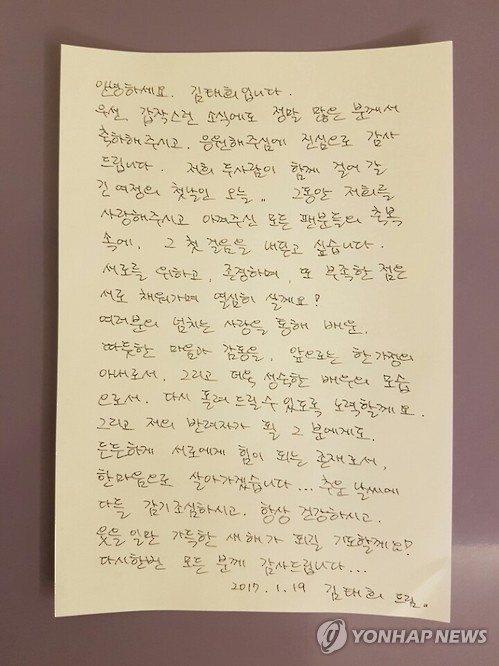 안녕하세요. 김태희입니다.
우선, 갑작스런 소식에도 정말 많은 분께서
축하해주시고, 응원해주심에 진심으로 감사
드립니다. 저희 두사람이 함께 걸어 갈
긴 여정의 첫날인 오늘.. 그동안 저희를
사랑해주시고 아껴주신 모든 팬분들의 축복
속에, 그 첫 걸음을 내딛고 싶습니다.
서로를 위하고, 존경하며, 또 부족한 점은
서로 채워가며 열심히 살게요!
여러분의 넘치는 사랑을 통해 배운,
따듯한 마음과 감동을, 앞으로는 한 가정의
아내로서, 그리고 더욱 성숙한 배우의 모습
으로서, 다시 돌려 드릴 수 있도록 노력할게요.
그리고 저의 반려자가 될 그 분에게도,
든든하게 서로에게 힘이 되는 존재로서,
한마음으로 살아가겠습니다... 추운 날씨에
다들 감기조심하시고, 항상 건강하시고,
웃을 일만 가득한 새해가 되길 기도할게요!
다시한번 모든 분께 감사드립니다...
2017.1.19 김태희 드림..
YONHAP NEWS